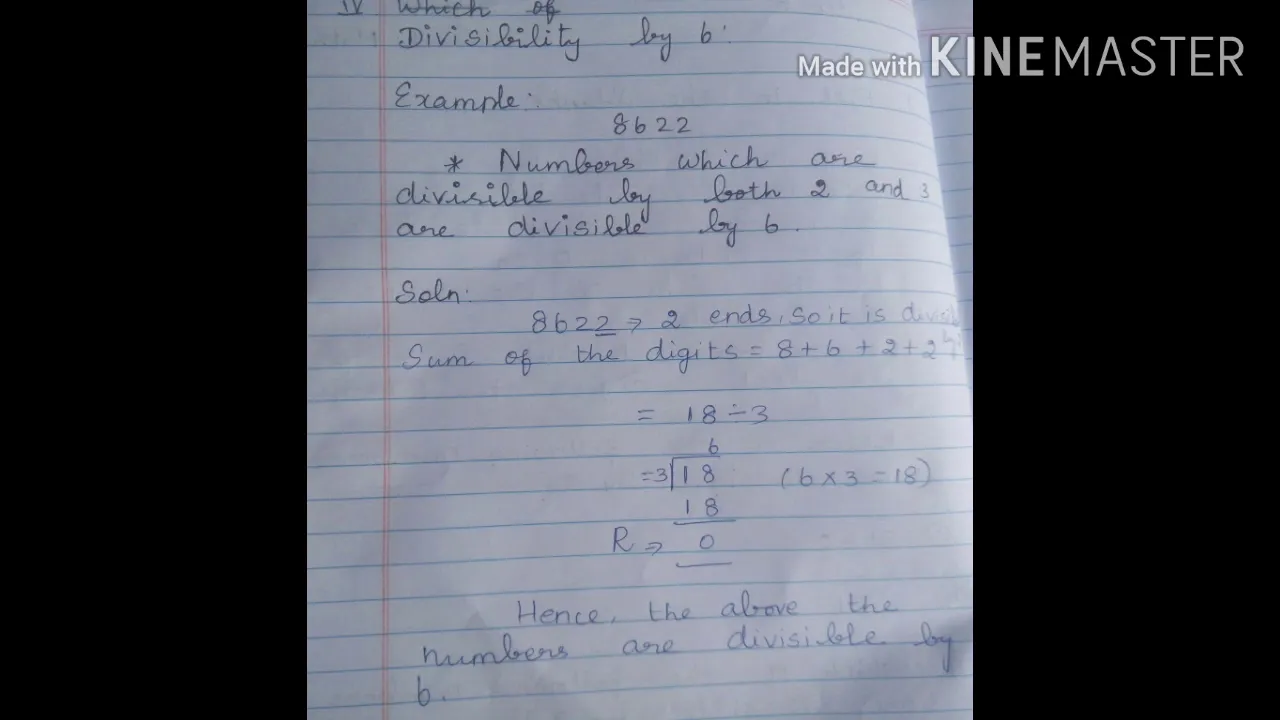 IV Which of
Divisibility by 6:
Made with KINEMASTER
Example:
8622
* Numbers which are
divisible by both 2 and 3
are divisible by 6.
Soln:
8622 ⇒ 2 ends, So it is divisi
Sum of the digits = 8+6+2+2
= 18÷3
6
=3)18 (6×3=18)
18
R ⇒ 0
Hence, the above the
numbers are divisible by
6.